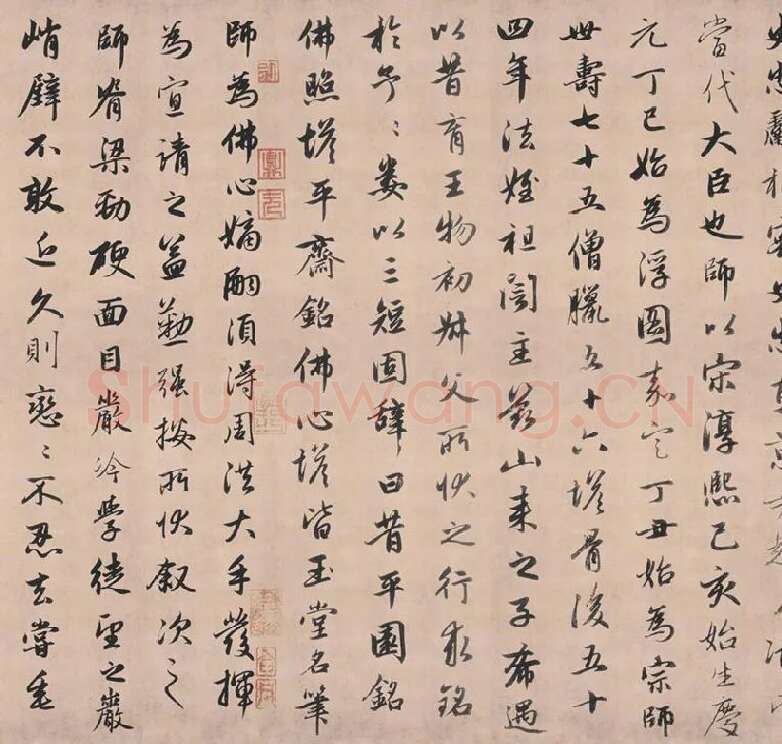 當代大臣也師以宋淳熙己亥始生慶
元丁巳始為浮圖嘉定丁丑始為宗師
世壽七十五僧臘五十六塔骨後五十
四年法姪祖訚主茲山来之子喬遇
以昔育王物初叔父所狀之行求銘
於予〻婁以三短固辞曰昔平園銘
佛照塔平齋銘佛心塔皆玉堂名筆
師為佛心嫡嗣須得周洪大手發揮
為宣請之益勤强按所狀叙次之
師脊梁勁硬面目嚴冷學徒望之巖
峭壁不敢近久則戀〻不忍去嘗垂
Shufawang.CN